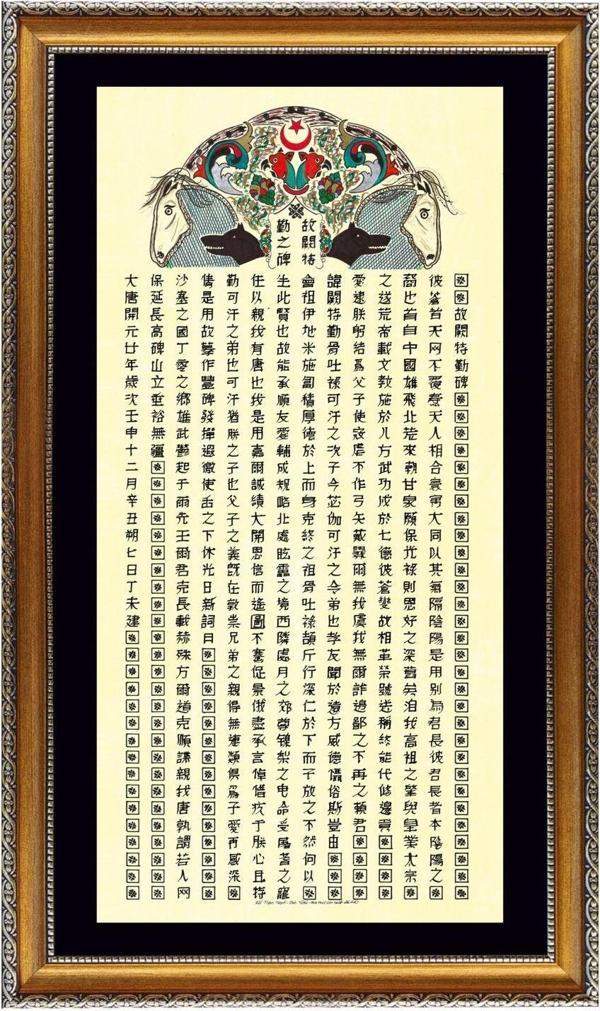 故闕特
勤之碑
故闕特勤碑
彼蒼者天网不覆燾天人相合寰宇大同以其氣隔陰陽是用別為君長彼君長者本陰陽之
裔也首自中國雄飛北荒來朝甘泉願保光祿則恩好之深舊矣洎我高祖之肇興皇業太宗
之遂荒帝載文教施於八方武功成於七德彼蒼變故相革榮號迭稱終能代修邊貢
爰逮朕躬結為父子使寇虐不作弓矢載櫜爾無我虞我無爾詐邊鄙之不再之賴君
諱闕特勤骨吐祿可汗之次子今苾伽可汗之令弟也孝友聞於遠方威德懾俗斯豈由
曾祖伊地米施匐積厚德於上而身克終之祖骨吐祿頡斤行深仁於下而子之不然何以
生此賢也故能承順友愛輔成規略北處眩靁之境西隣處月之郊尊梨之命受屠耆之寵
任以親我有唐也我是用嘉爾誠績大開恩信而遙圖不騫促景俄盡承言悼惜疚于朕心且特
勤可汗之弟也可汗猶朕之子也父子之義既在敦崇兄弟之親得無連類俱為子愛再感深
情是用故作豐碑發揮遐徼使之下休光日新詞曰
沙塞之國丁零之鄉雄武鬱起于爾先王爾君克長載赫殊方爾道克順謀親我唐孰謂若人网
保延長高碑山立垂裕無疆
大唐開元廿年歲次壬申十二月辛丑朔七日丁未建